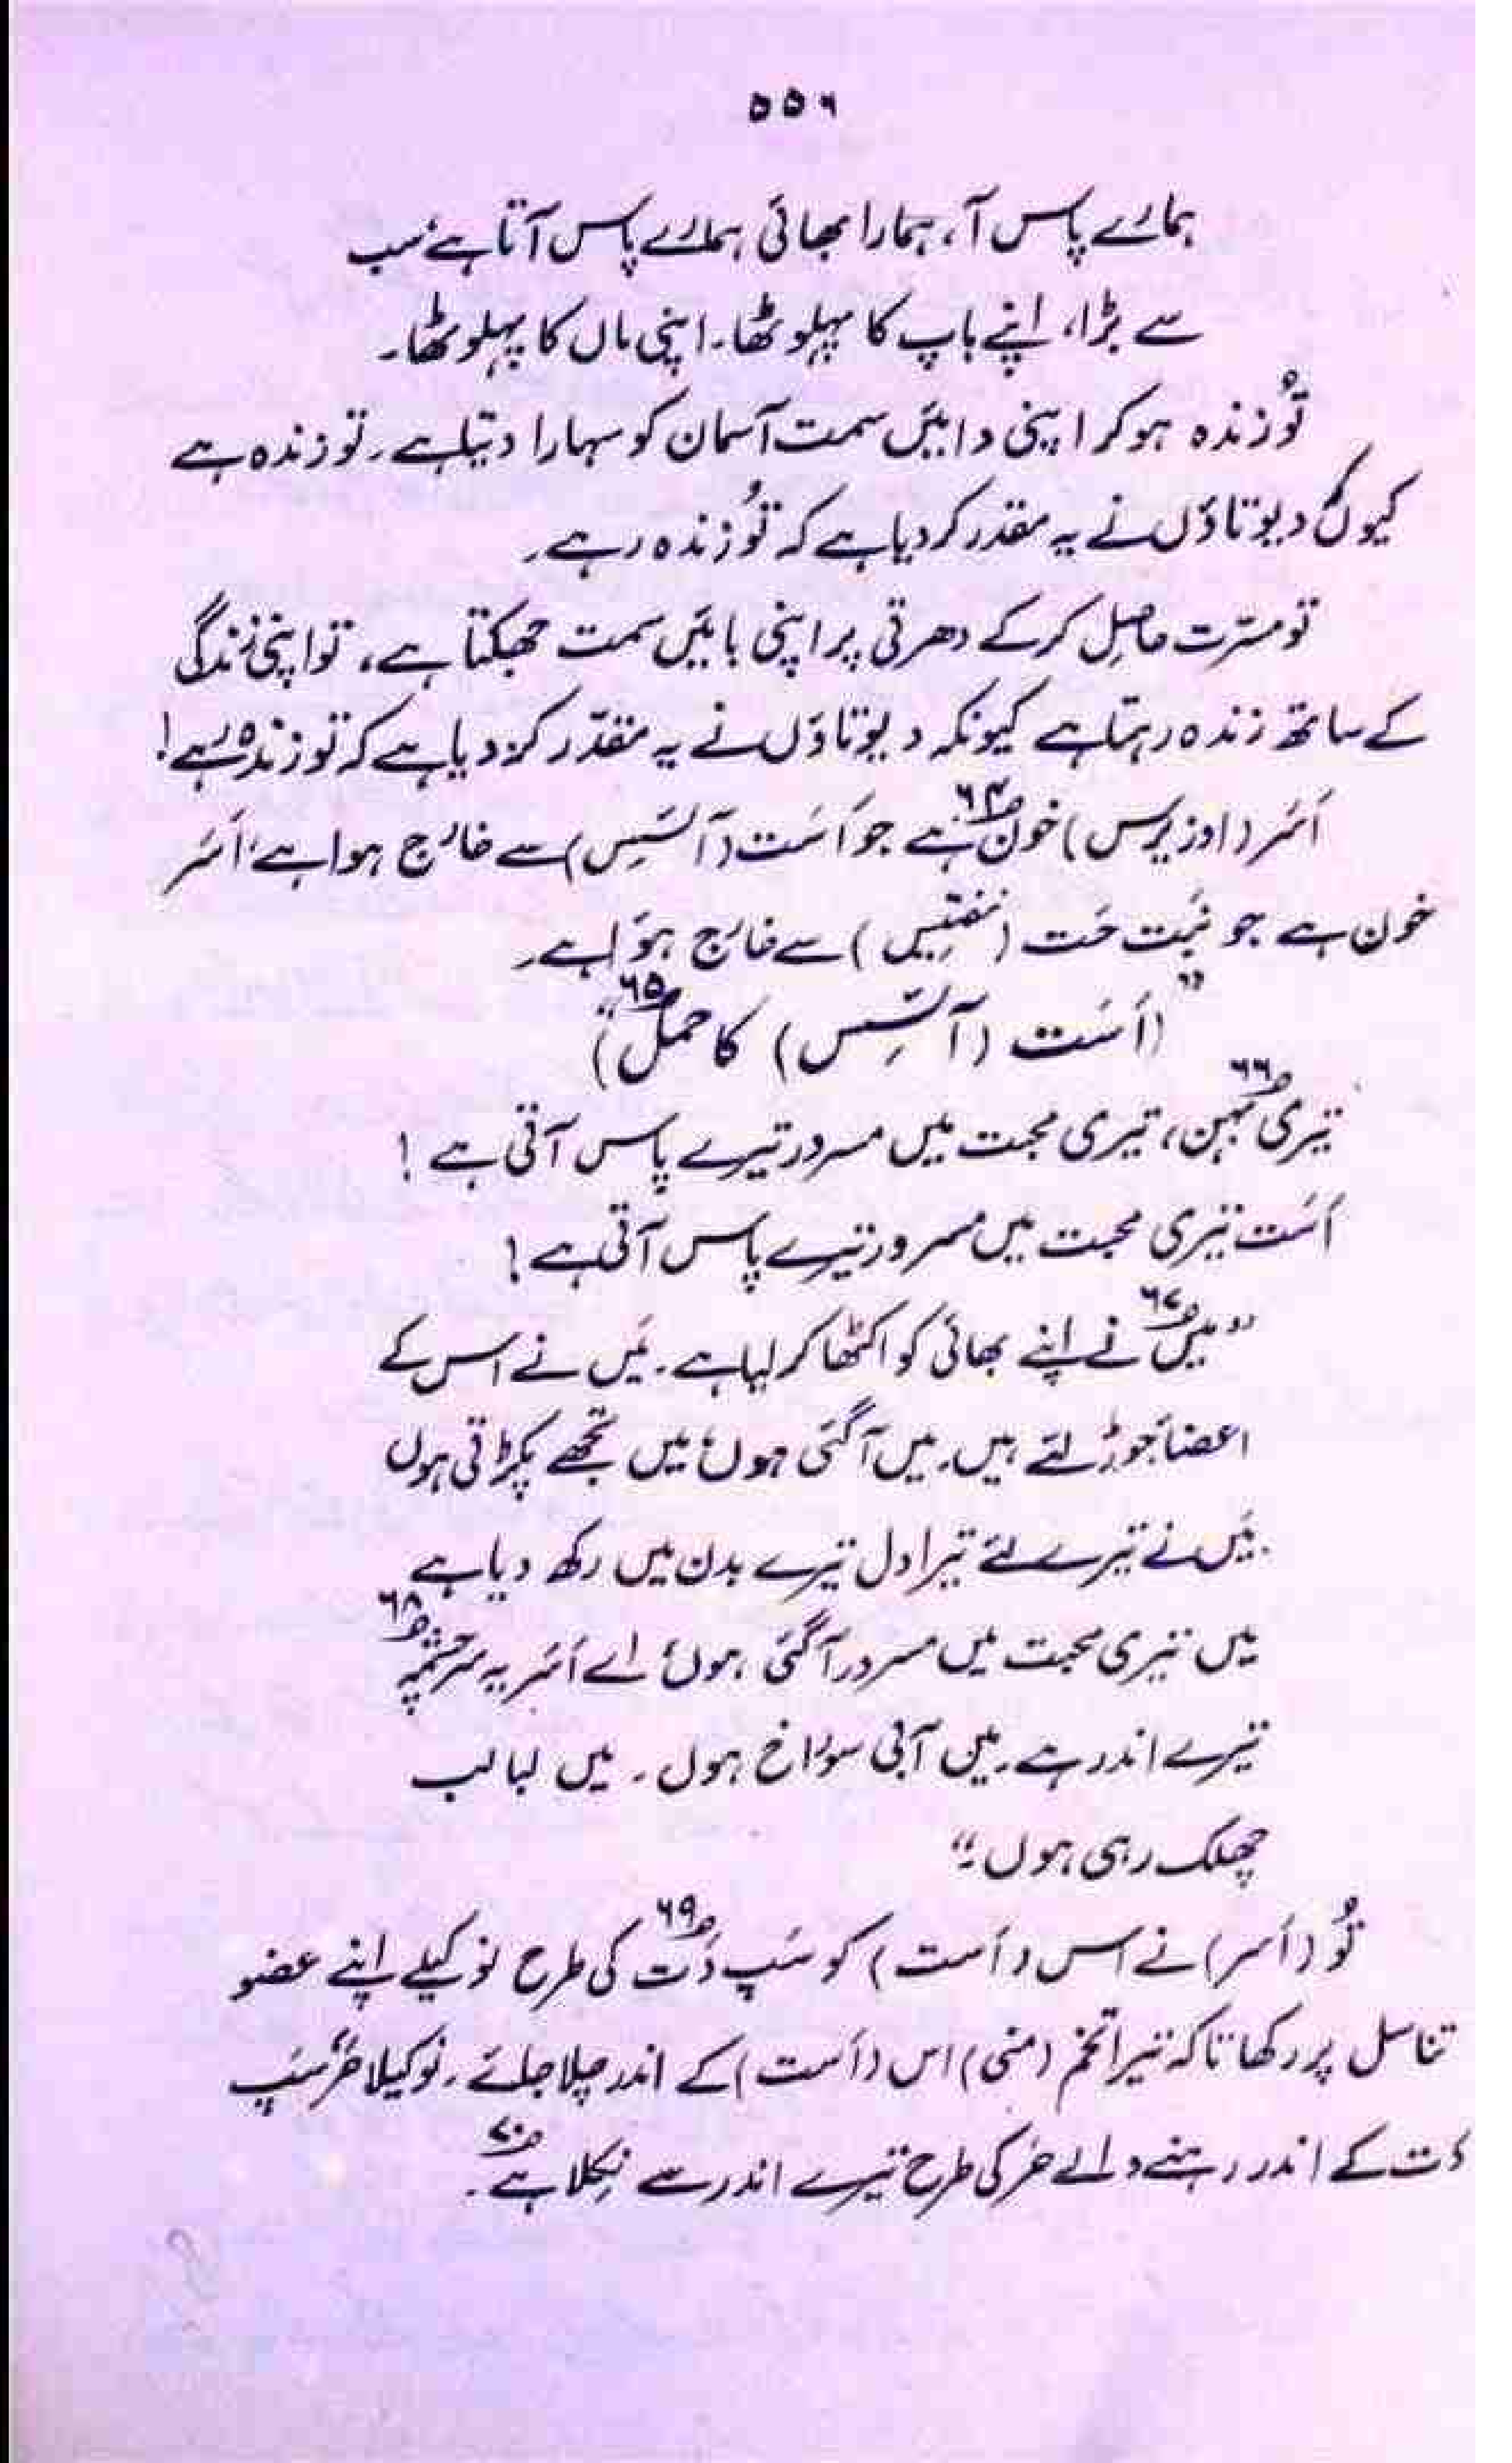 ۵۵۶
ہمارے پاس آ، ہمارا بھائی ہمارے پاس آتا ہے، سب
سے بڑا، اپنے باپ کا پہلوٹھا۔ اپنی ماں کا پہلوٹھا۔
تُو زندہ ہوکر اپنی دائیں سمت آسمان کو سہارا دیتا ہے۔ تو زندہ ہے
کیوں کہ دیوتاؤں نے یہ مقدر کر دیا ہے کہ تُو زندہ رہے۔
تو مسرّت حاصل کرکے دھرتی پر اپنی بائیں سمت جھکتا ہے، تو اپنی زندگی
کے ساتھ زندہ رہتا ہے کیونکہ دیوتاؤں نے یہ مقدّر کر دیا ہے کہ تو زندہ رہے!
اَسَر (اوزیرس) خون ہے ؎۶۴ جو اَسَت (آئسِس) سے خارج ہوا ہے، اَسَر
خون ہے جو نَبت حَت (نفتیس) سے خارج ہوَا ہے۔
"(اَسَت (آئسِس) کا حمل؎۶۵)"
تیری بہن؎۶۶، تیری محبت میں مسرور تیرے پاس آتی ہے!
اَسَت تیری محبت میں مسرور تیرے پاس آتی ہے!
"میں؎۶۷ نے اپنے بھائی کو اکٹھا کر لیا ہے۔ میَں نے اس کے
اعضاَ جوڑ لئے ہیں۔ میں آگئی ہوں، میں تجھے پکڑتی ہوں
۔ میَں نے تیرے لئے تیرا دل تیرے بدن میں رکھ دیا ہے
میں تیری محبت میں مسرور آگئی ہوں، اے اَسَر یہ سرچشمہ؎۶۸
تیرے اندر ہے۔ میں آبی سوراخ ہوں۔ میں لبالب
چھلک رہی ہوں۔"
تُو (اَسر) نے اس (اَست) کو سَپ دَت؎۶۹ کی طرح نوکیلے اپنے عضو
تناسل پر رکھا تاکہ تیرا تخم (منی) اس (اَست) کے اندر چلا جائے۔ نوکیلا حَر، سَپ
دَت کے اندر رہنے والے حَر کی طرح تیرے اندر سے نکلا ہے؎۷۰۔